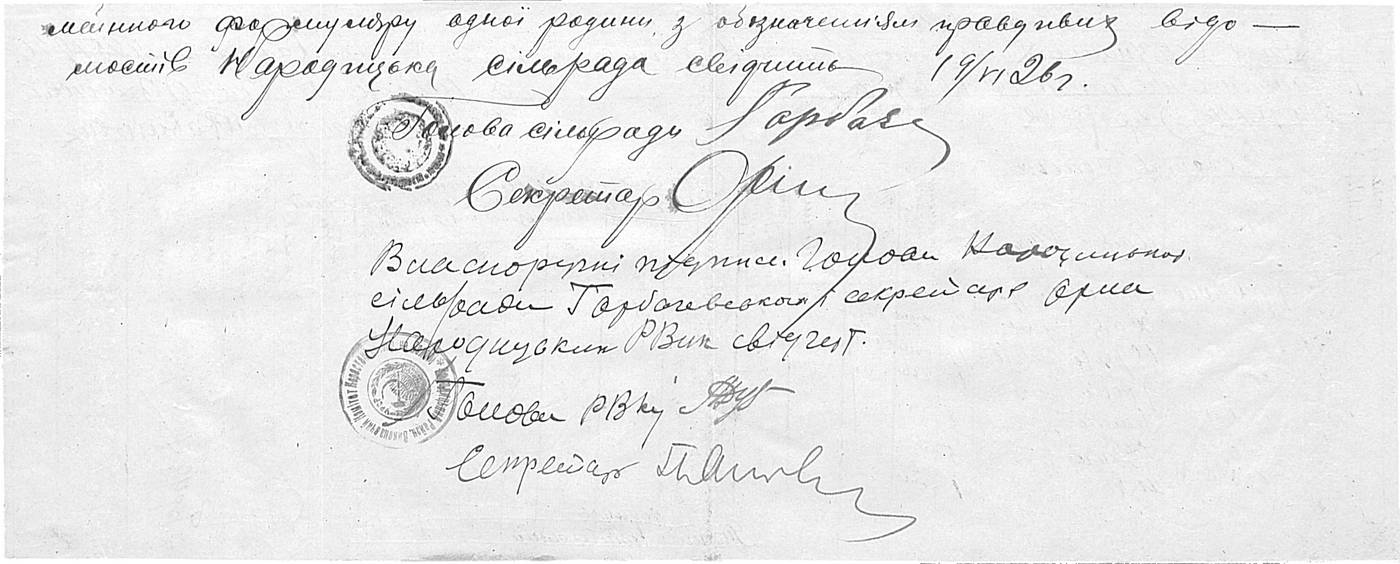 мейнного формуляру одної родини, з обозначенням правдивих відо—
мостів Народицька сільрада свідчить 19/VI 26 г.
Голова сільради Горбаче
Секретар
Власноручні підписи Голови Народицької
сільради Горбачевського, секретаря
Народицький РВик свідчет.
Голова РВКу
Секретар
Район. Виконавчий Комітет